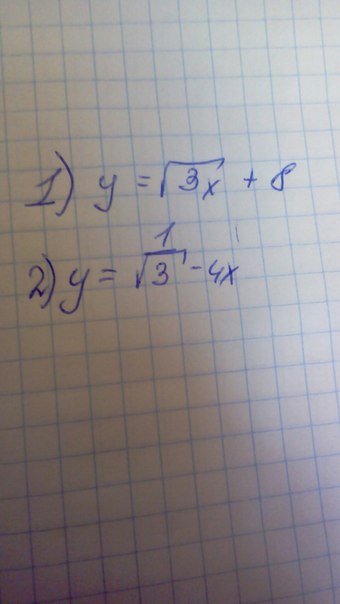 1) y = √3x + 8
2) y = 1/√3 - 4x